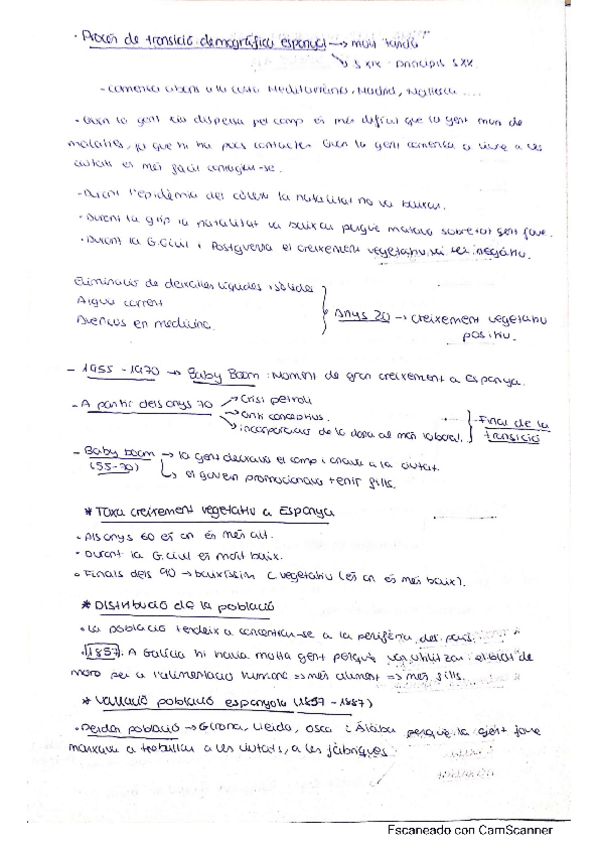 · Procés de transició demogràfica espanyol → molt tardà
↳ s XIX - principis s XX.
- comença abans a la costa Mediterrània, Madrid, Mallorca ....
· Quan la gent viu dispersa pel camp és més difícil que la gent mori de
malalties, ja que hi ha pocs contactes. Quan la gent comença a viure a les
ciutats és més fàcil contagiar-se.
- Durant l'epidèmia del còlera la natalitat no va baixar.
· Durant la grip la natalitat va baixar perquè matava sobretot gent jove.
· Durant la G.Civil i Postguerra el creixement vegetatiu va ser negatiu.
Eliminació de deixalles líquides i sòlides
Aigua corrent
Avenços en medicina.
Anys 20 → creixement vegetatiu
positiu.
- 1955 - 1970 → Baby Boom : Moment de gran creixement a Espanya.
- A partir dels anys 70 → Crisi petroli
→ Anti conceptius.
→ incorporació de la dona al món laboral.
- Final de la
transició
- Baby boom → la gent deixava el camp i anava a la ciutat.
(55-70) ↳ el govern promocionava tenir fills.
* Taxa creixement vegetatiu a Espanya
· Als anys 60 és on és més alt.
· Durant la G.civil és molt baix.
· Finals dels 90 → baixíssim C vegetatiu (és on és més baix).
* Distribució de la població
· La població tendeix a concentrar-se a la perifèria del país.
· 1857: A Galícia hi havia molta gent perquè van utilitzar el blat de
moro per a l'alimentació humana => més aliment => més fills.
* Variació població espanyola (1857 - 1887)
· Perden població → Girona, Lleida, Osca i Àlaba perquè la gent jove
marxava a treballar a les ciutats, a les fàbriques.
Escaneado con CamScanner